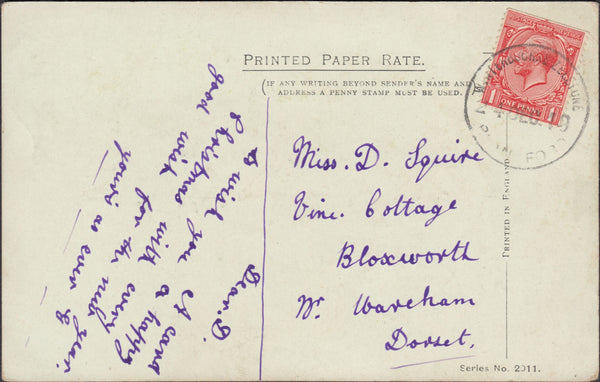 PRINTED PAPER RATE.
(IF ANY WRITING BEYOND SENDER'S NAME AND
ADDRESS A PENNY STAMP MUST BE USED.)
ONE PENNY
Dear. D.
A card
to wish you a happy
Christmas with every
good wish for the
year.
yours as ever
Miss. D. Squire
Vine Cottage
Bloxworth
Nr. Wareham
Dorset.
PRINTED IN ENGLAND.
Series No. 2011.